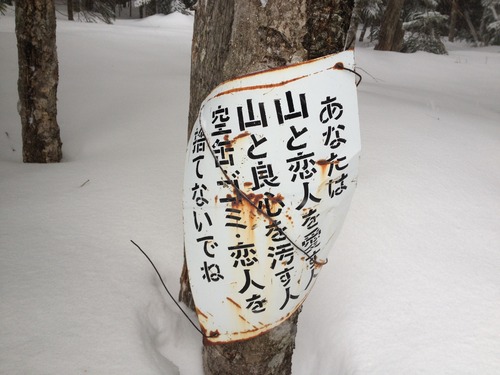 あなたは
山と恋人を愛す人
山と良心を汚す人
空缶・ゴミ・恋人を
捨てないでね